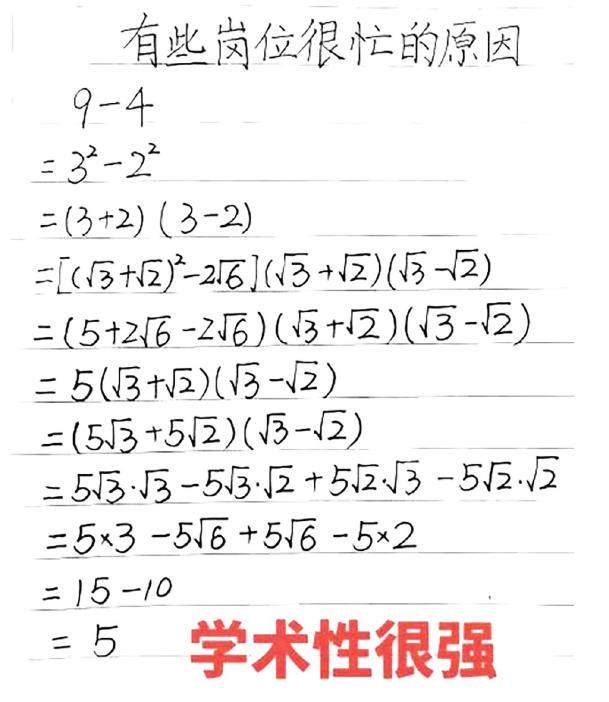 有些岗位很忙的原因
9-4
=3²-2²
=(3+2)(3-2)
=[(√3+√2)²-2√6](√3+√2)(√3-√2)
=(5+2√6-2√6)(√3+√2)(√3-√2)
=5(√3+√2)(√3-√2)
=(5√3+5√2)(√3-√2)
=5√3·√3-5√3·√2+5√2·√3-5√2·√2
=5×3-5√6+5√6-5×2
=15-10
=5
学术性很强